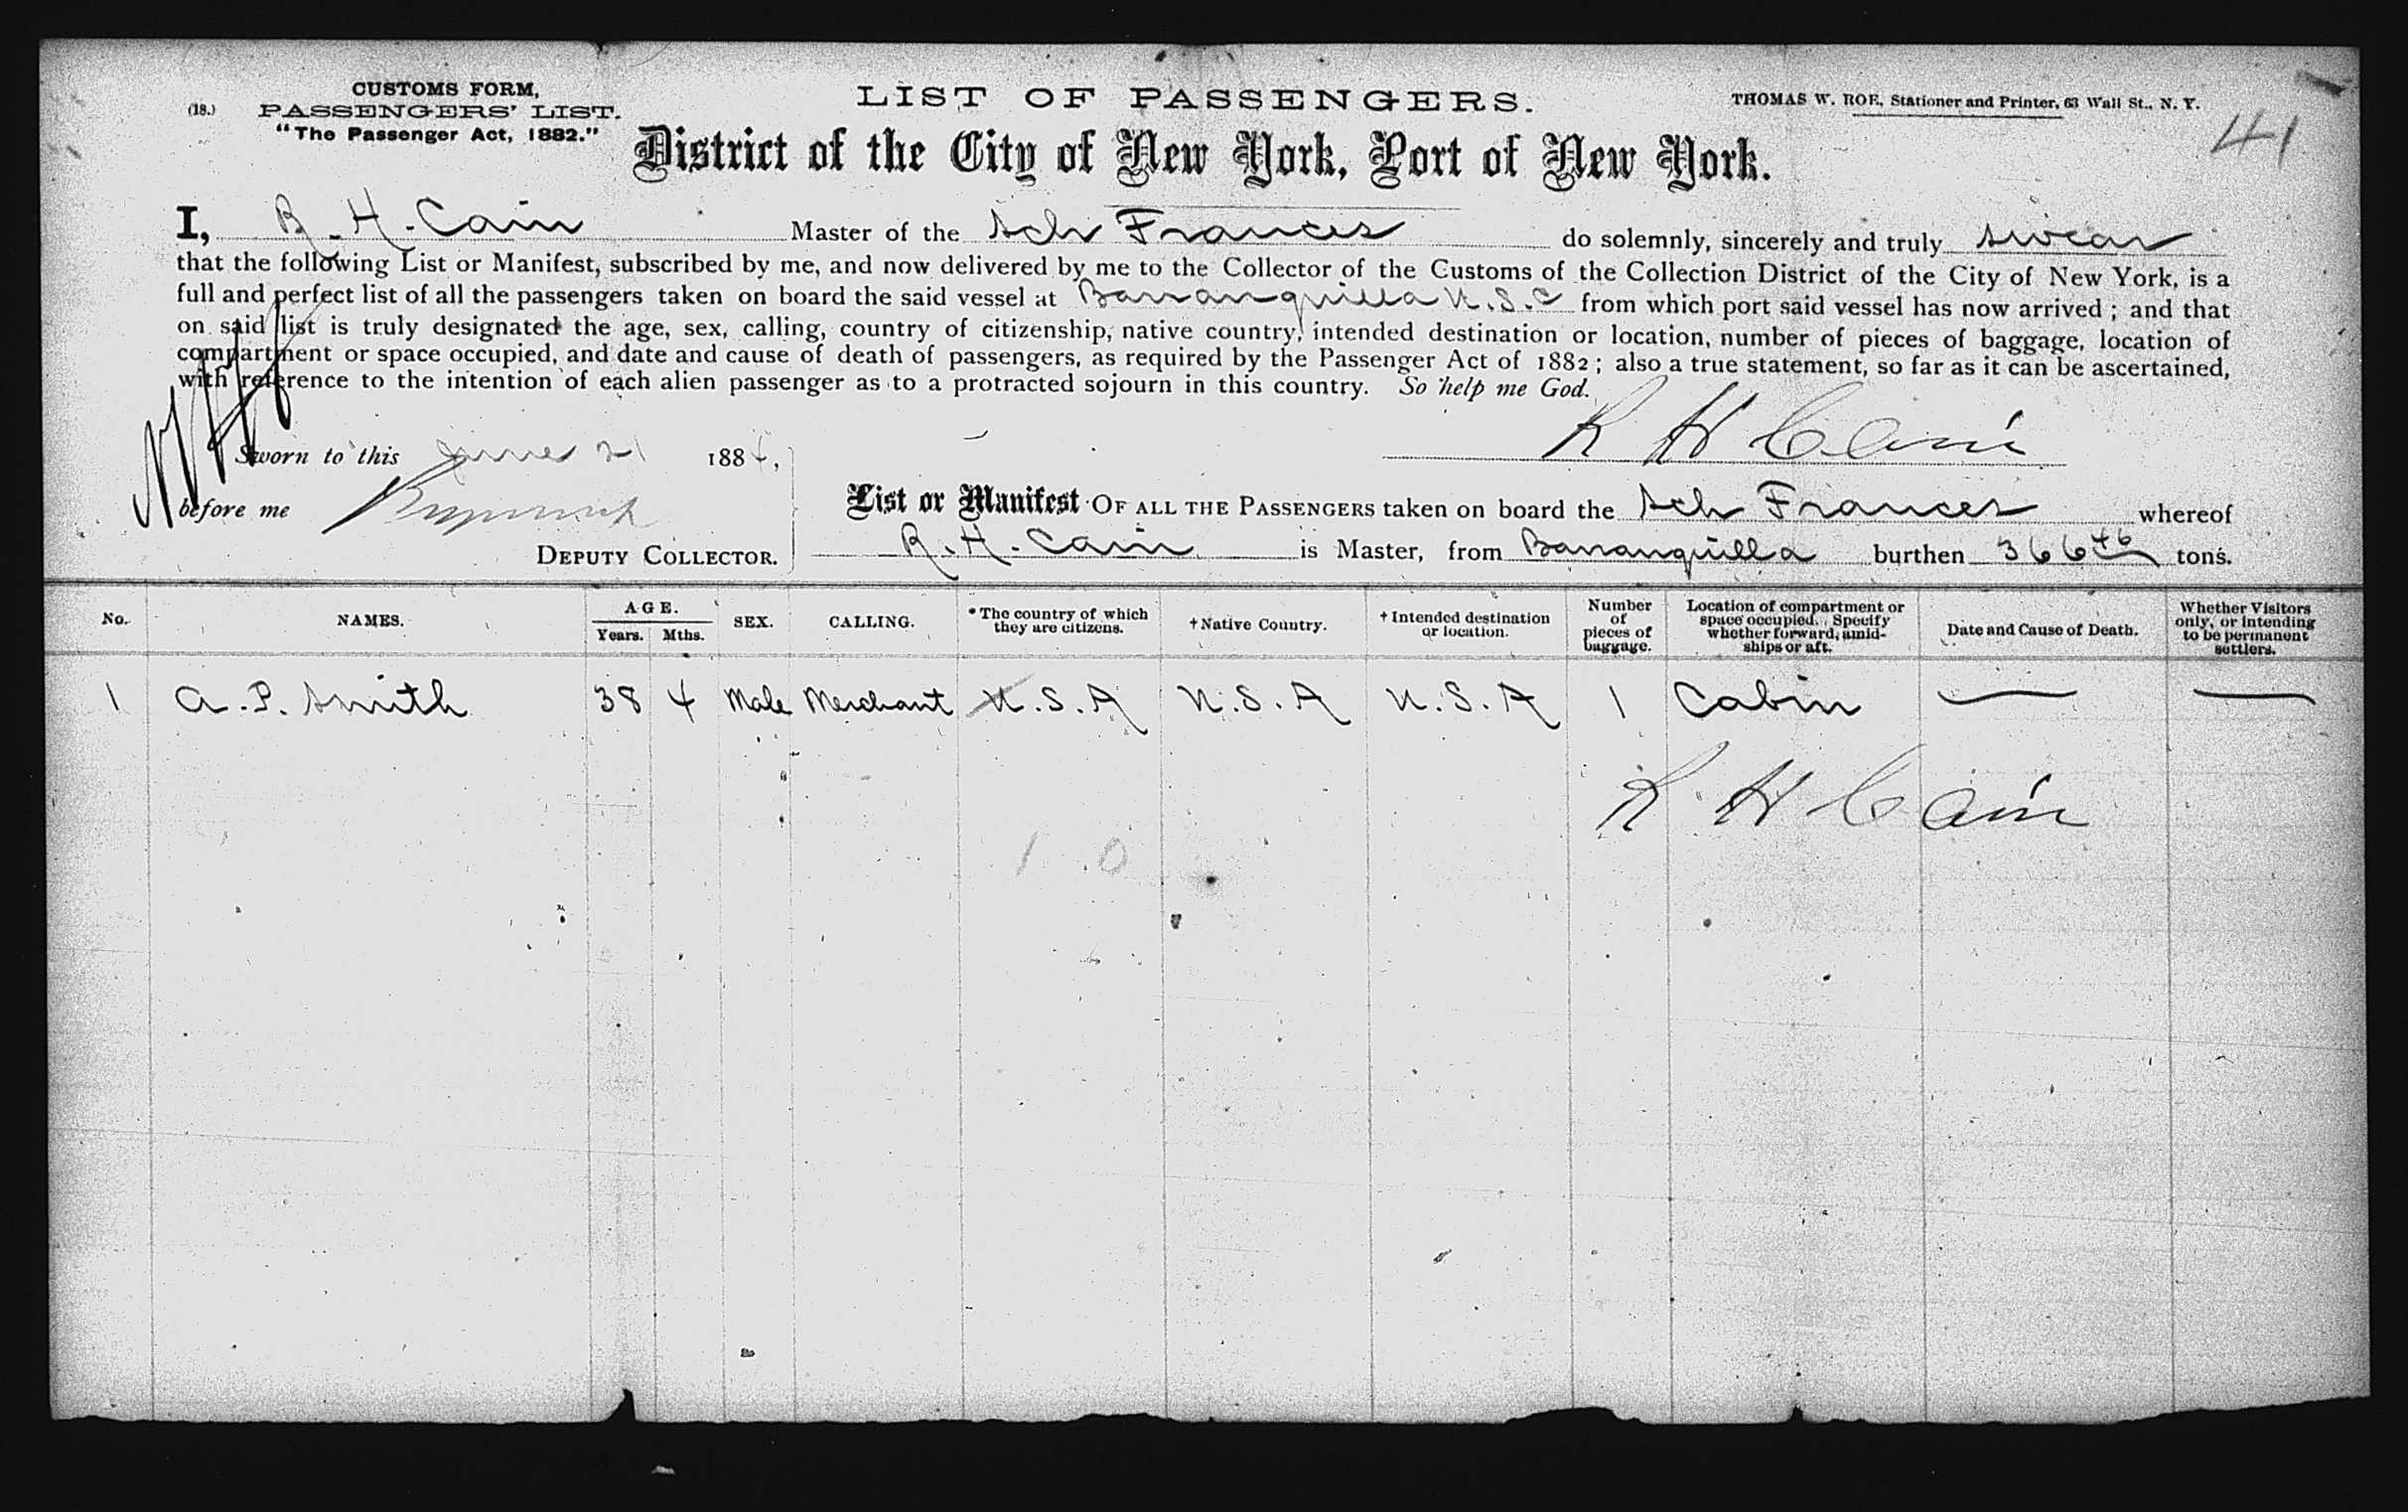 CUSTOMS FORM,
(18.) PASSENGERS' LIST.
"The Passenger Act, 1882."
LIST OF PASSENGERS.
THOMAS W. ROE, Stationer and Printer, 63 Wall St., N. Y.
41
District of the City of New York, Port of New York.
I, R. H. Cain Master of the Sch Frances do solemnly, sincerely and truly swear
that the following List or Manifest, subscribed by me, and now delivered by me to the Collector of the Customs of the Collection District of the City of New York, is a
full and perfect list of all the passengers taken on board the said vessel at Barranquilla U.S.C from which port said vessel has now arrived; and that
on said list is truly designated the age, sex, calling, country of citizenship, native country, intended destination or location, number of pieces of baggage, location of
compartment or space occupied, and date and cause of death of passengers, as required by the Passenger Act of 1882; also a true statement, so far as it can be ascertained,
with reference to the intention of each alien passenger as to a protracted sojourn in this country. So help me God.
R H Cain
Sworn to this June 21 1884,
before me
DEPUTY COLLECTOR.
List or Manifest OF ALL THE PASSENGERS taken on board the Sch Frances whereof
R. H. Cain is Master, from Barranquilla burthen 366 46 tons.
No. NAMES. AGE. Years. Mths. SEX. CALLING. *The country of which they are citizens. †Native Country. †Intended destination or location. Number of pieces of baggage. Location of compartment or space occupied. Specify whether forward, amidships or aft. Date and Cause of Death. Whether Visitors only, or intending to be permanent settlers.
1 A. P. Smith 38 4 Male Merchant U.S.A U.S.A U.S.A 1 Cabin — —
R H Cain
1 0